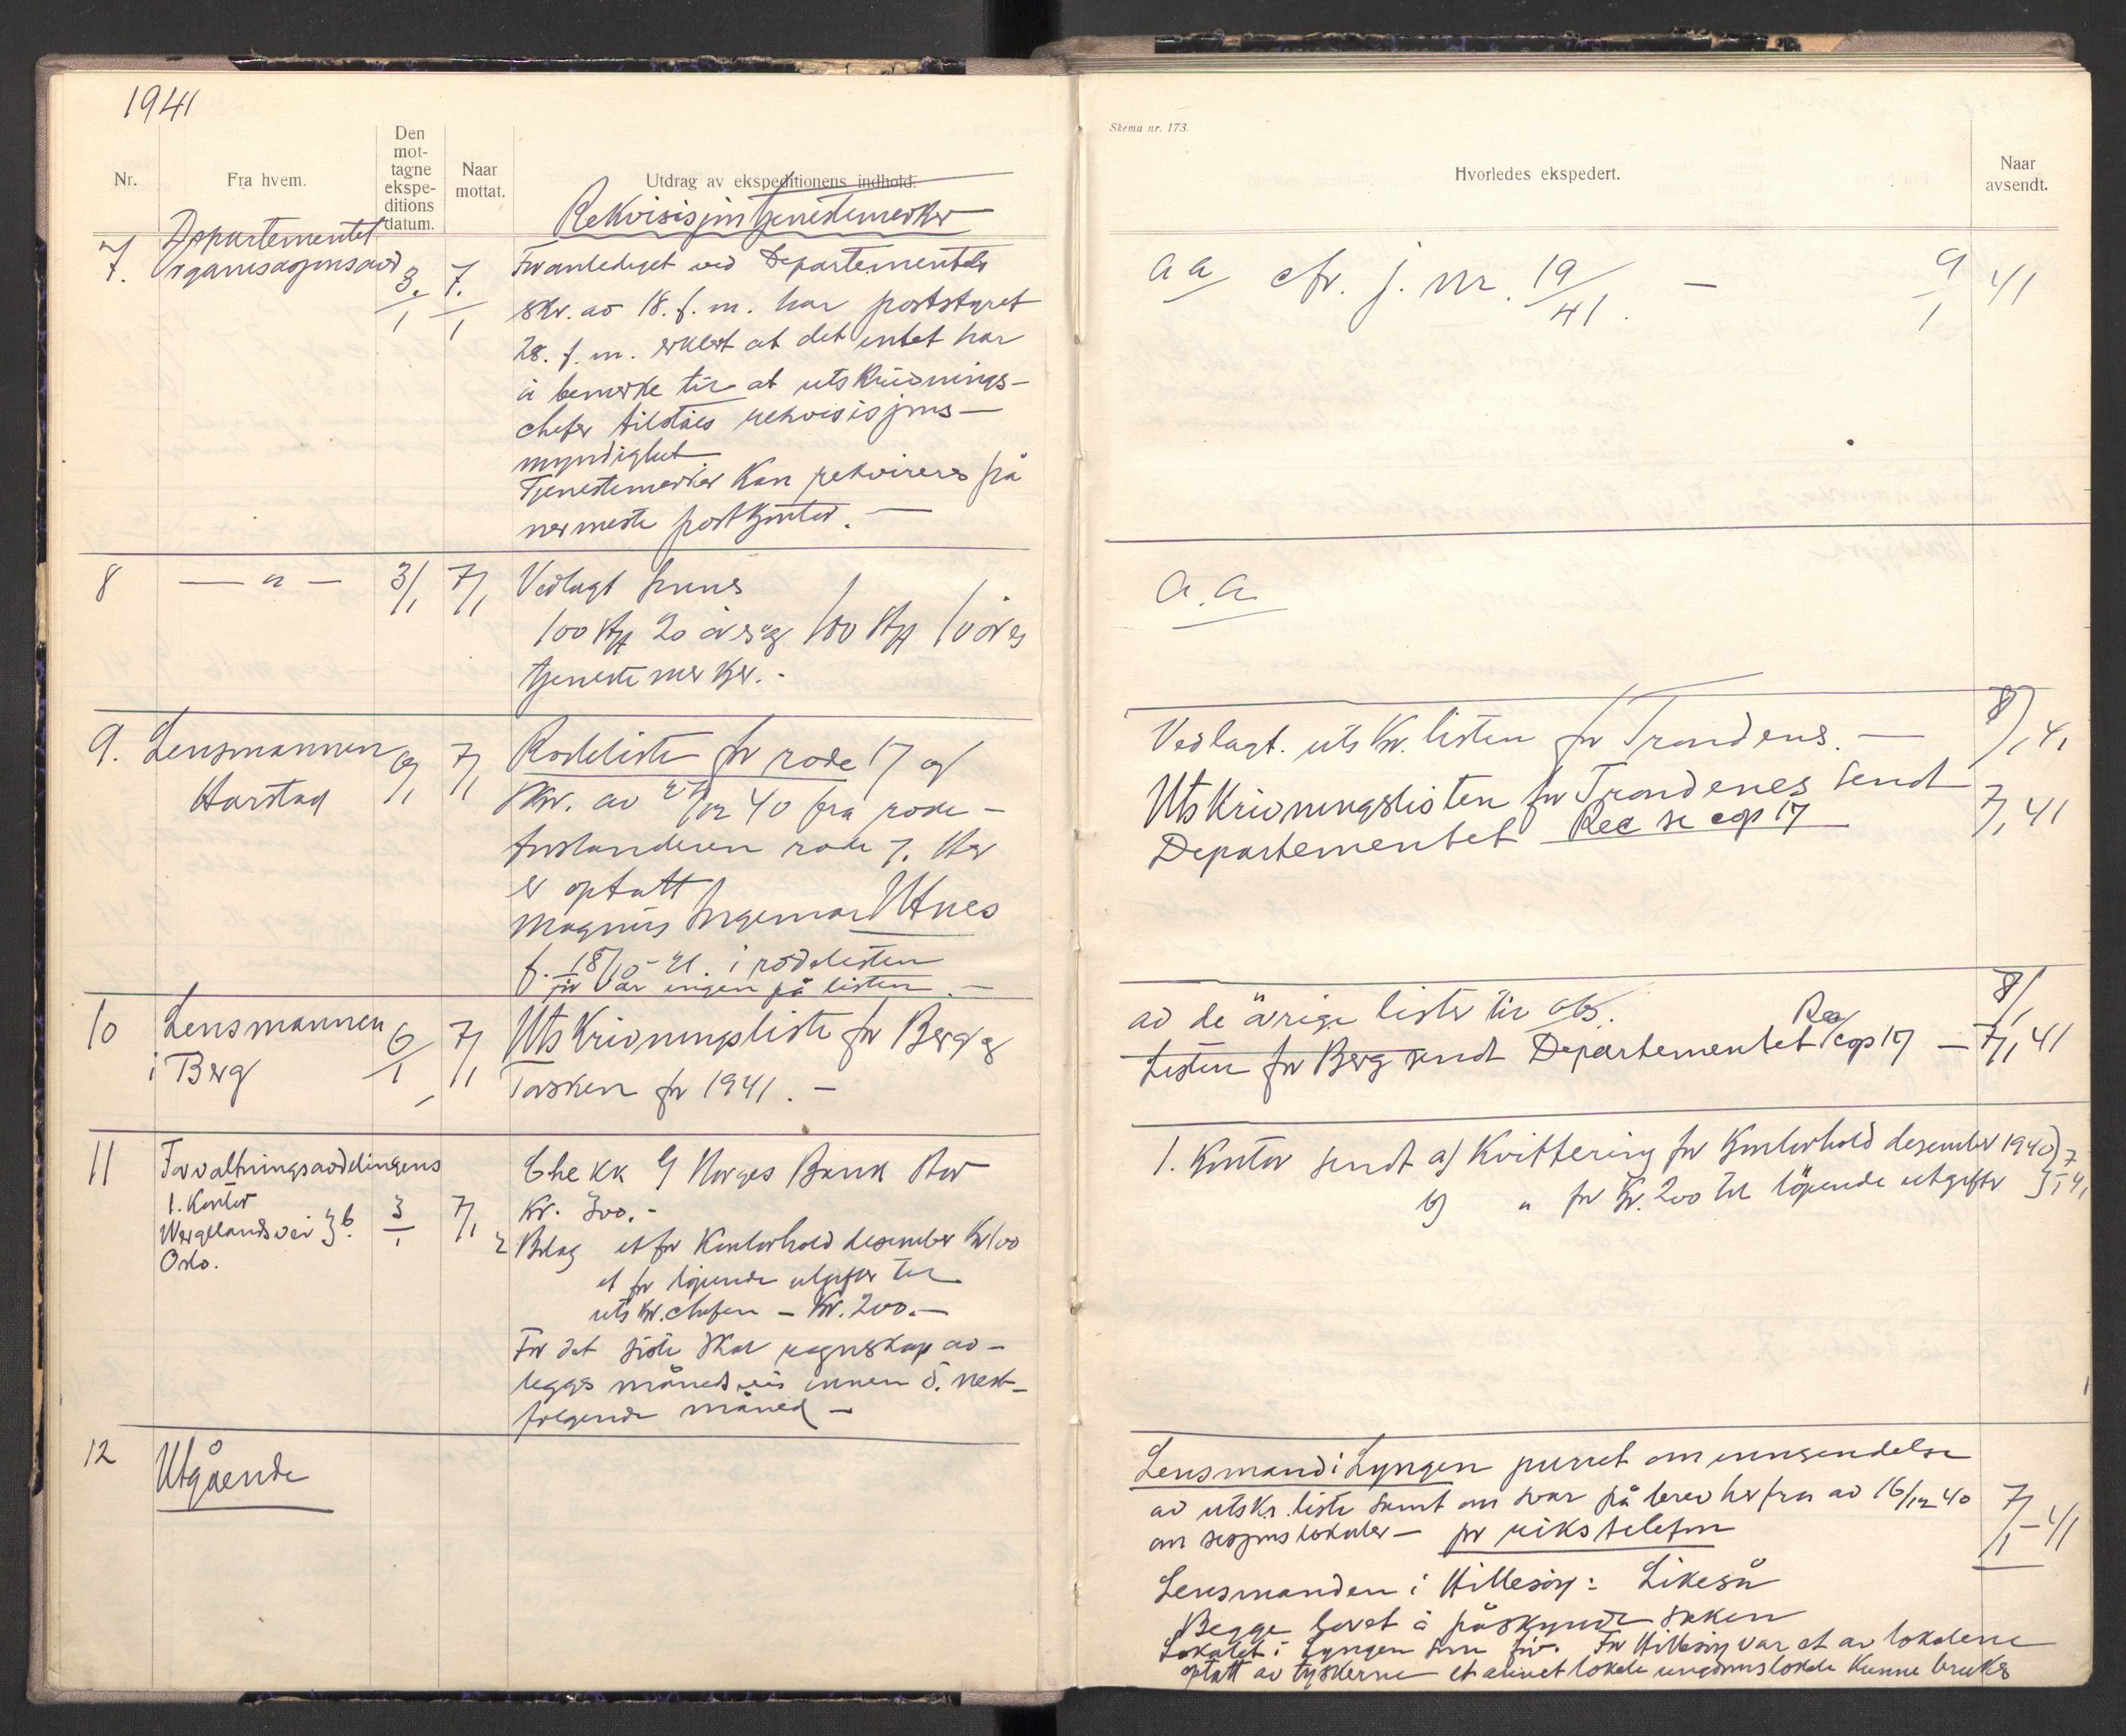 1941
Nr.
Fra hvem.
Den
mot-
tagne
ekspe-
ditions
datum.
Naar
mottat.
Utdrag av ekspeditionens indhold.
Rekvisisjon tjenestemerker
7.
Departementet
Organisasjonsavd
3./1
7./1
Foranlediget ved Departementets
skr. av 18. f. m. har poststyret
28. f. m. erklært at det intet har
å bemerke til at utskrivnings-
chefer tilståes rekvisisjons-
myndighet
Tjenestemerker kan rekvireres på
nermeste postkontor. —
8
— " —
3/1
7/1
Vedlagt
100 stk 20 øres og 100 stk 10 øres
tjenestemerker. -
9.
Lensmannen
Harstad
6/1
7/1
Rodeliste for rode 17 og
skr. av 27/12 40 fra rode-
forstanderen rode 7. Her
er optatt
Magnus Ingemar Utnes
f. 18/10 - 21. i rodelisten
før var ingen på listen. —
10
Lensmannen
i Berg
6/1
7/1
Utskrivningsliste for Berg og
Torsken for 1941. —
11
Forvaltningsavdelingens
1. Kontor
Wergelandsvei 3b.
Oslo.
3/1
7/1
Chekk på Norges Bank stor
Kr. 300. -
2 Bilag et for Kontorhold desember Kr 100
et for løpende utgifter til
utskr.chefen — Kr. 200. —
For det siste skal regnskap av-
legges månedsvis innen 5. nest-
følgende måned —
12
Utgående
Skema nr. 173.
Hvorledes ekspedert.
Naar
avsendt.
a a cfr. j. nr. 19/41. —
9/1 41
a. a.
Vedlagt. utskr. listen for Trondenes. —
8/1 41
Utskrivningslisten for Trondenes sendt
Departementet Rec se cop 17
7/1 41
av de øvrige lister til obs.
8/1
Listen for Berg sendt Departementet Rec/cop 17 — 7/1 41
1. Kontor sendt a) Kvittering for Kontorhold desember 1940
b) " for Kr. 200 til løpende utgifter
7/1 41
Lensmand i Lyngen purret om innsendelse
av utskr. liste samt om svar på brev herfra av 16/12 40
om sesjonslokaler — pr rikstelefon
7/1 - 41
Lensmanden i Hillesøy: Likeså
Begge lovet å påskynde saken
Lokalet i Lyngen som før. For Hillesøy var et av lokalene
optatt av tyskerne — et annet lokale ungdomslokale kunne brukes